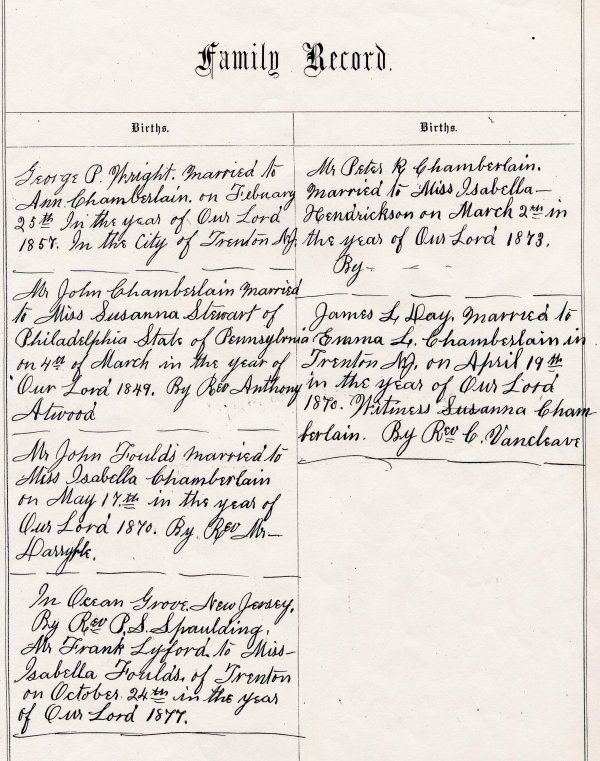 Family Record.
Births.
George P. Wright. Married to
Ann Chamberlain. on Febuary
25th In the year of Our Lord
1857. In the City of Trenton NJ.
Mr John Chamberlain married
to Miss Susanna Stewart of
Philadelphia State of Pennsylvania
on 4th of March in the year of
Our Lord 1849. By Rev Anthony
Atwood
Mr John Foulds married to
Miss Isabella Chamberlain
on May 17th in the year of
Our Lord 1870. By Rev Mr—
In Ocean Grove. New Jersey.
By Rev P. S. Spaulding.
Mr Frank Lyford. to Miss—
Isabella Foulds. of Trenton
on October 24th in the year
of Our Lord 1877.
Births.
Mr Peter R Chamberlain.
Married to Miss Isabella—
Hendrickson on March 2nd in
the year of Our Lord 1873.
By
James L Day. Married to
Emma L. Chamberlain in
Trenton NJ. on April 19th
in the year of Our Lord
1870. Witness Susanna Cham
berlain. By Rev C. Vancleave